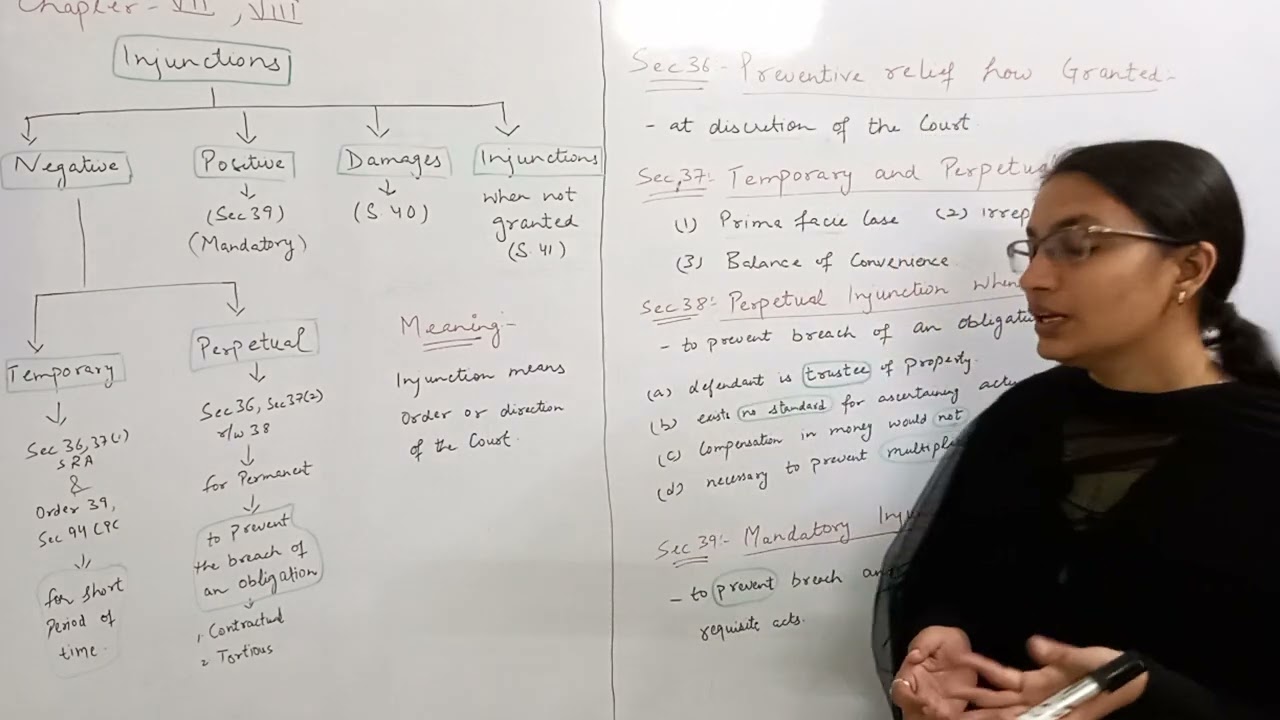 Chapter - VII, VIII
Injunctions
Negative
Positive
(Sec 39)
(Mandatory)
Damages
(S 40)
Injunctions
when not
granted
(S. 41)
Temporary
Sec 36, 37(1)
SRA
&
Order 39,
Sec 94 CPC
for short
Period of
time.
Perpetual
Sec 36, Sec 37(2)
r/w 38
for Permanent
to Prevent
the breach of
an obligation
1. Contractual
2 Tortious
Meaning:-
Injunction means
Order or direction
of the Court.
Sec 36:- Preventive relief how Granted:-
- at discretion of the Court.
Sec, 37:- Temporary and Perpetual
(1) Prima facie Case (2) irrep
(3) Balance of Convenience
Sec 38:- Perpetual Injunction when
- to prevent breach of an obligat
(a) defendant is trustee of property.
(b) exists no standard for ascertaining actu
(c) Compensation in money would not
(d) necessary to prevent multipl
Sec 39:- Mandatory Inju
- to prevent breach an
requisite acts.